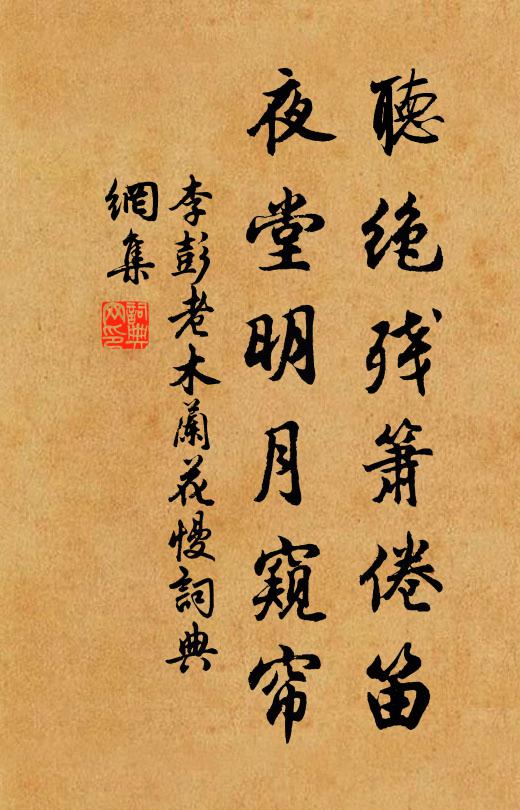 聽绝残簫倦笛
夜堂明月窺帘
李彭老木蘭花慢詞典
網集
詞典
文印